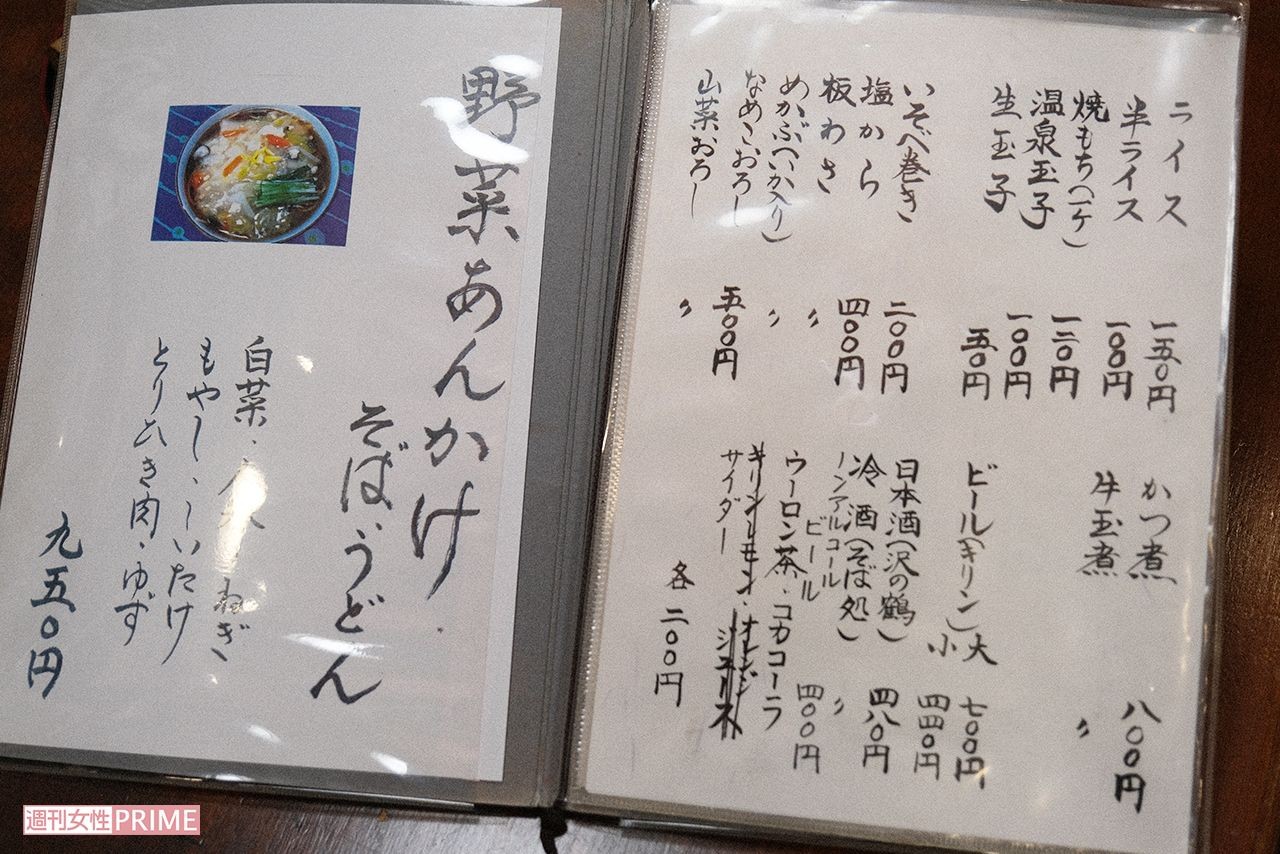 野菜あんかけ
そば、うどん
白菜、
ねぎ
もやし、しいたけ
とりひき肉、ゆず
九五〇円
ライス 一五〇円
半ライス 一〇〇円
焼もち(一ケ) 一二〇円
温泉玉子 一〇〇円
生玉子 五〇円
いそべ巻き 二〇〇円
塩から 四〇〇円
板わさ 〃
めかぶ(いか入り) 〃
なめこおろし 五〇〇円
山菜おろし 〃
かつ煮 八〇〇円
牛玉煮 〃
ビール(キリン) 大 七〇〇円
小 四四〇円
日本酒(沢の鶴) 四八〇円
冷酒(そば処) 〃
ノンアルコールビール 四〇〇円
ウーロン茶、コカコーラ
キリンレモン、オレンジジュース
サイダー
各二〇〇円
週刊女性PRIME